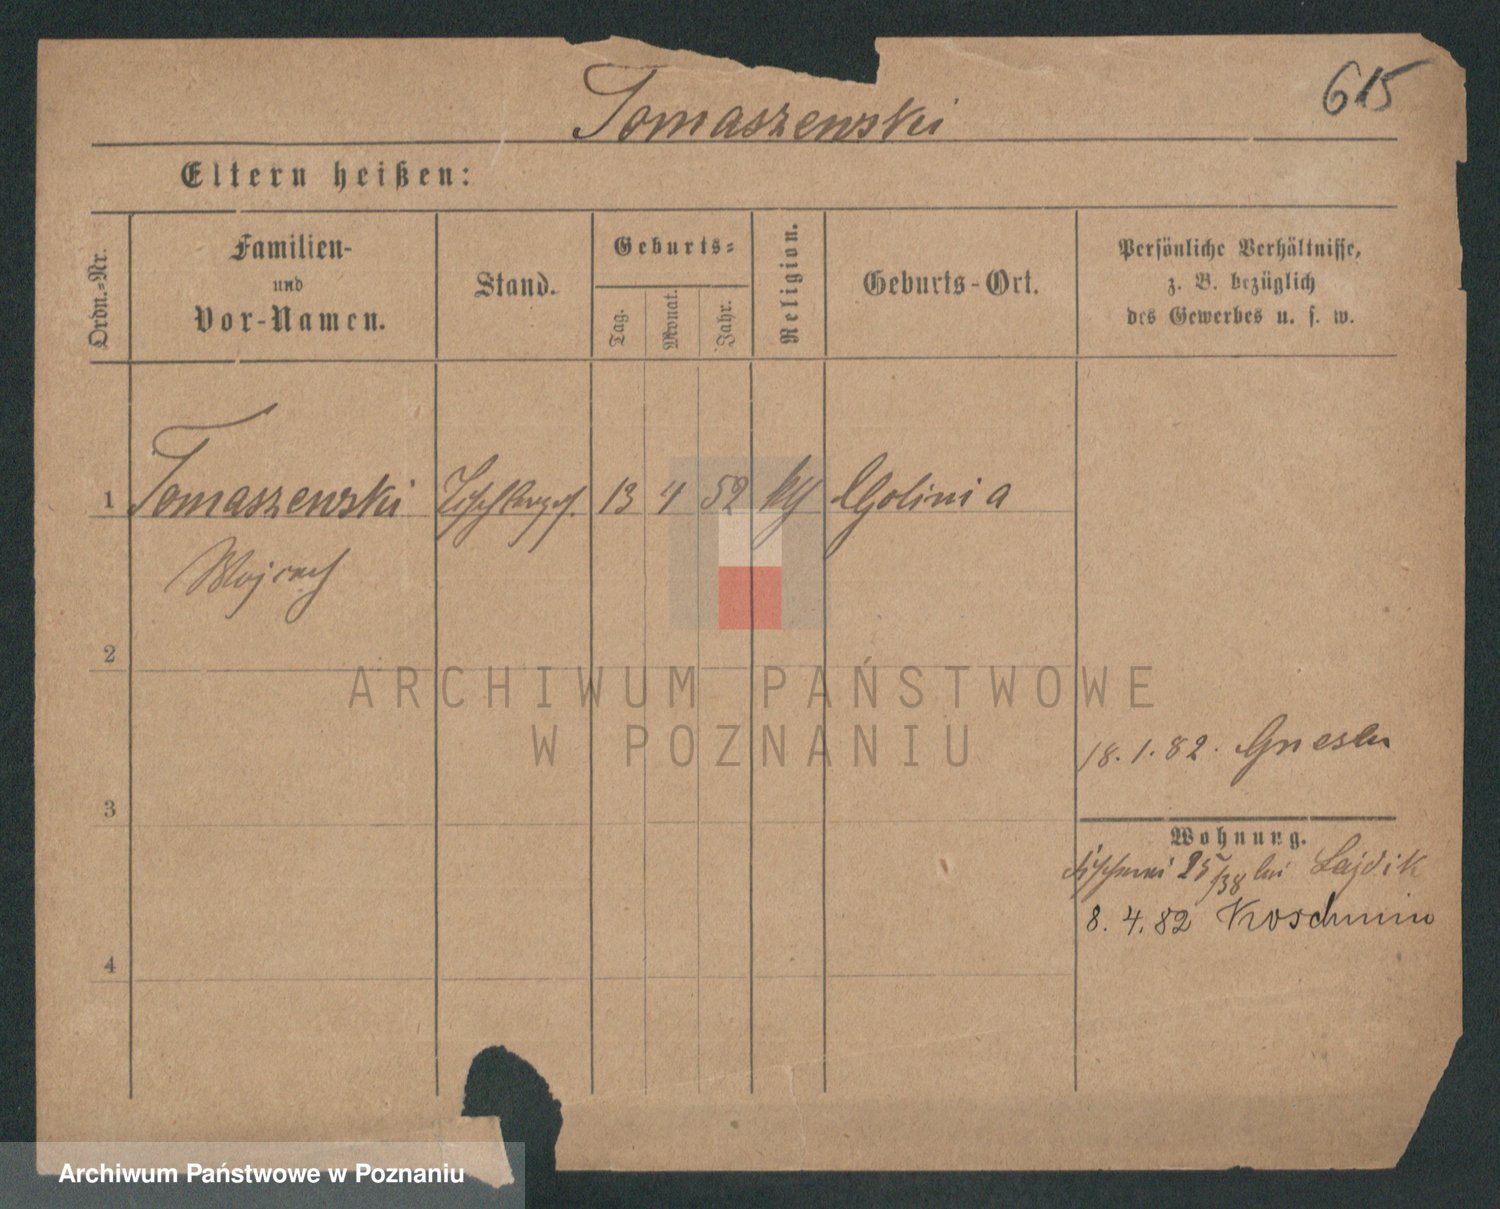 615
Tomaszewski
Eltern heißen:
Ordn.-Nr.
Familien-
und
Vor-Namen.
Stand.
Geburts-
Tag.
Monat.
Jahr.
Religion.
Geburts-Ort.
Persönliche Verhältnisse,
z. B. bezüglich
des Gewerbes u. s. w.
1 Tomaszewski 13 4 52 kth Golinia
Wojcech
2
ARCHIWUM PAŃSTWOWE
W POZNANIU
18.1.82. Gnesen
3
Wohnung.
Fischerei 25/38 bei Lajdik
8.4.82 Koschmin
4
Archiwum Państwowe w Poznaniu